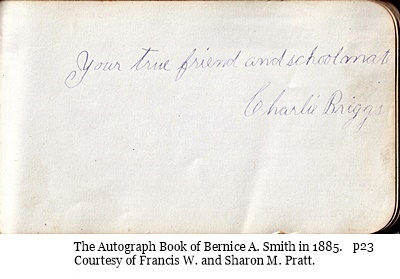 Your true friend and schoolmat
Charlie Briggs
The Autograph Book of Bernice A. Smith in 1885. p23
Courtesy of Francis W. and Sharon M. Pratt.